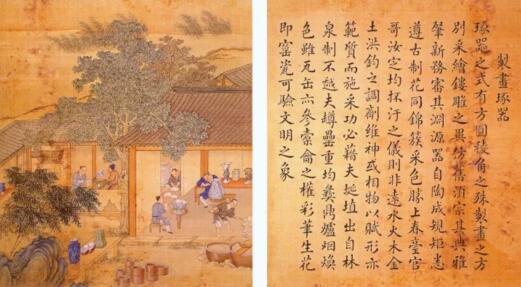 製畫琢器
琢器之式有方圓稜角之殊製畫之方
別采繪鏤雕之異仿舊湏宗其典雅
肇新務審其淵源器自陶成規矩悉
遵古制花同錦簇采色勝上春臺官
哥汝定均抔汙之儀則非遠水火木金
土洪鈞之調劑維神或相物以賦形亦
範質而施采功必藉夫埏埴出自林
泉制不越夫罇罍重均彝鼎爐烟煥
色雖瓦缶亦參橐籥之權彩筆生花
即窰瓷可驗文明之象